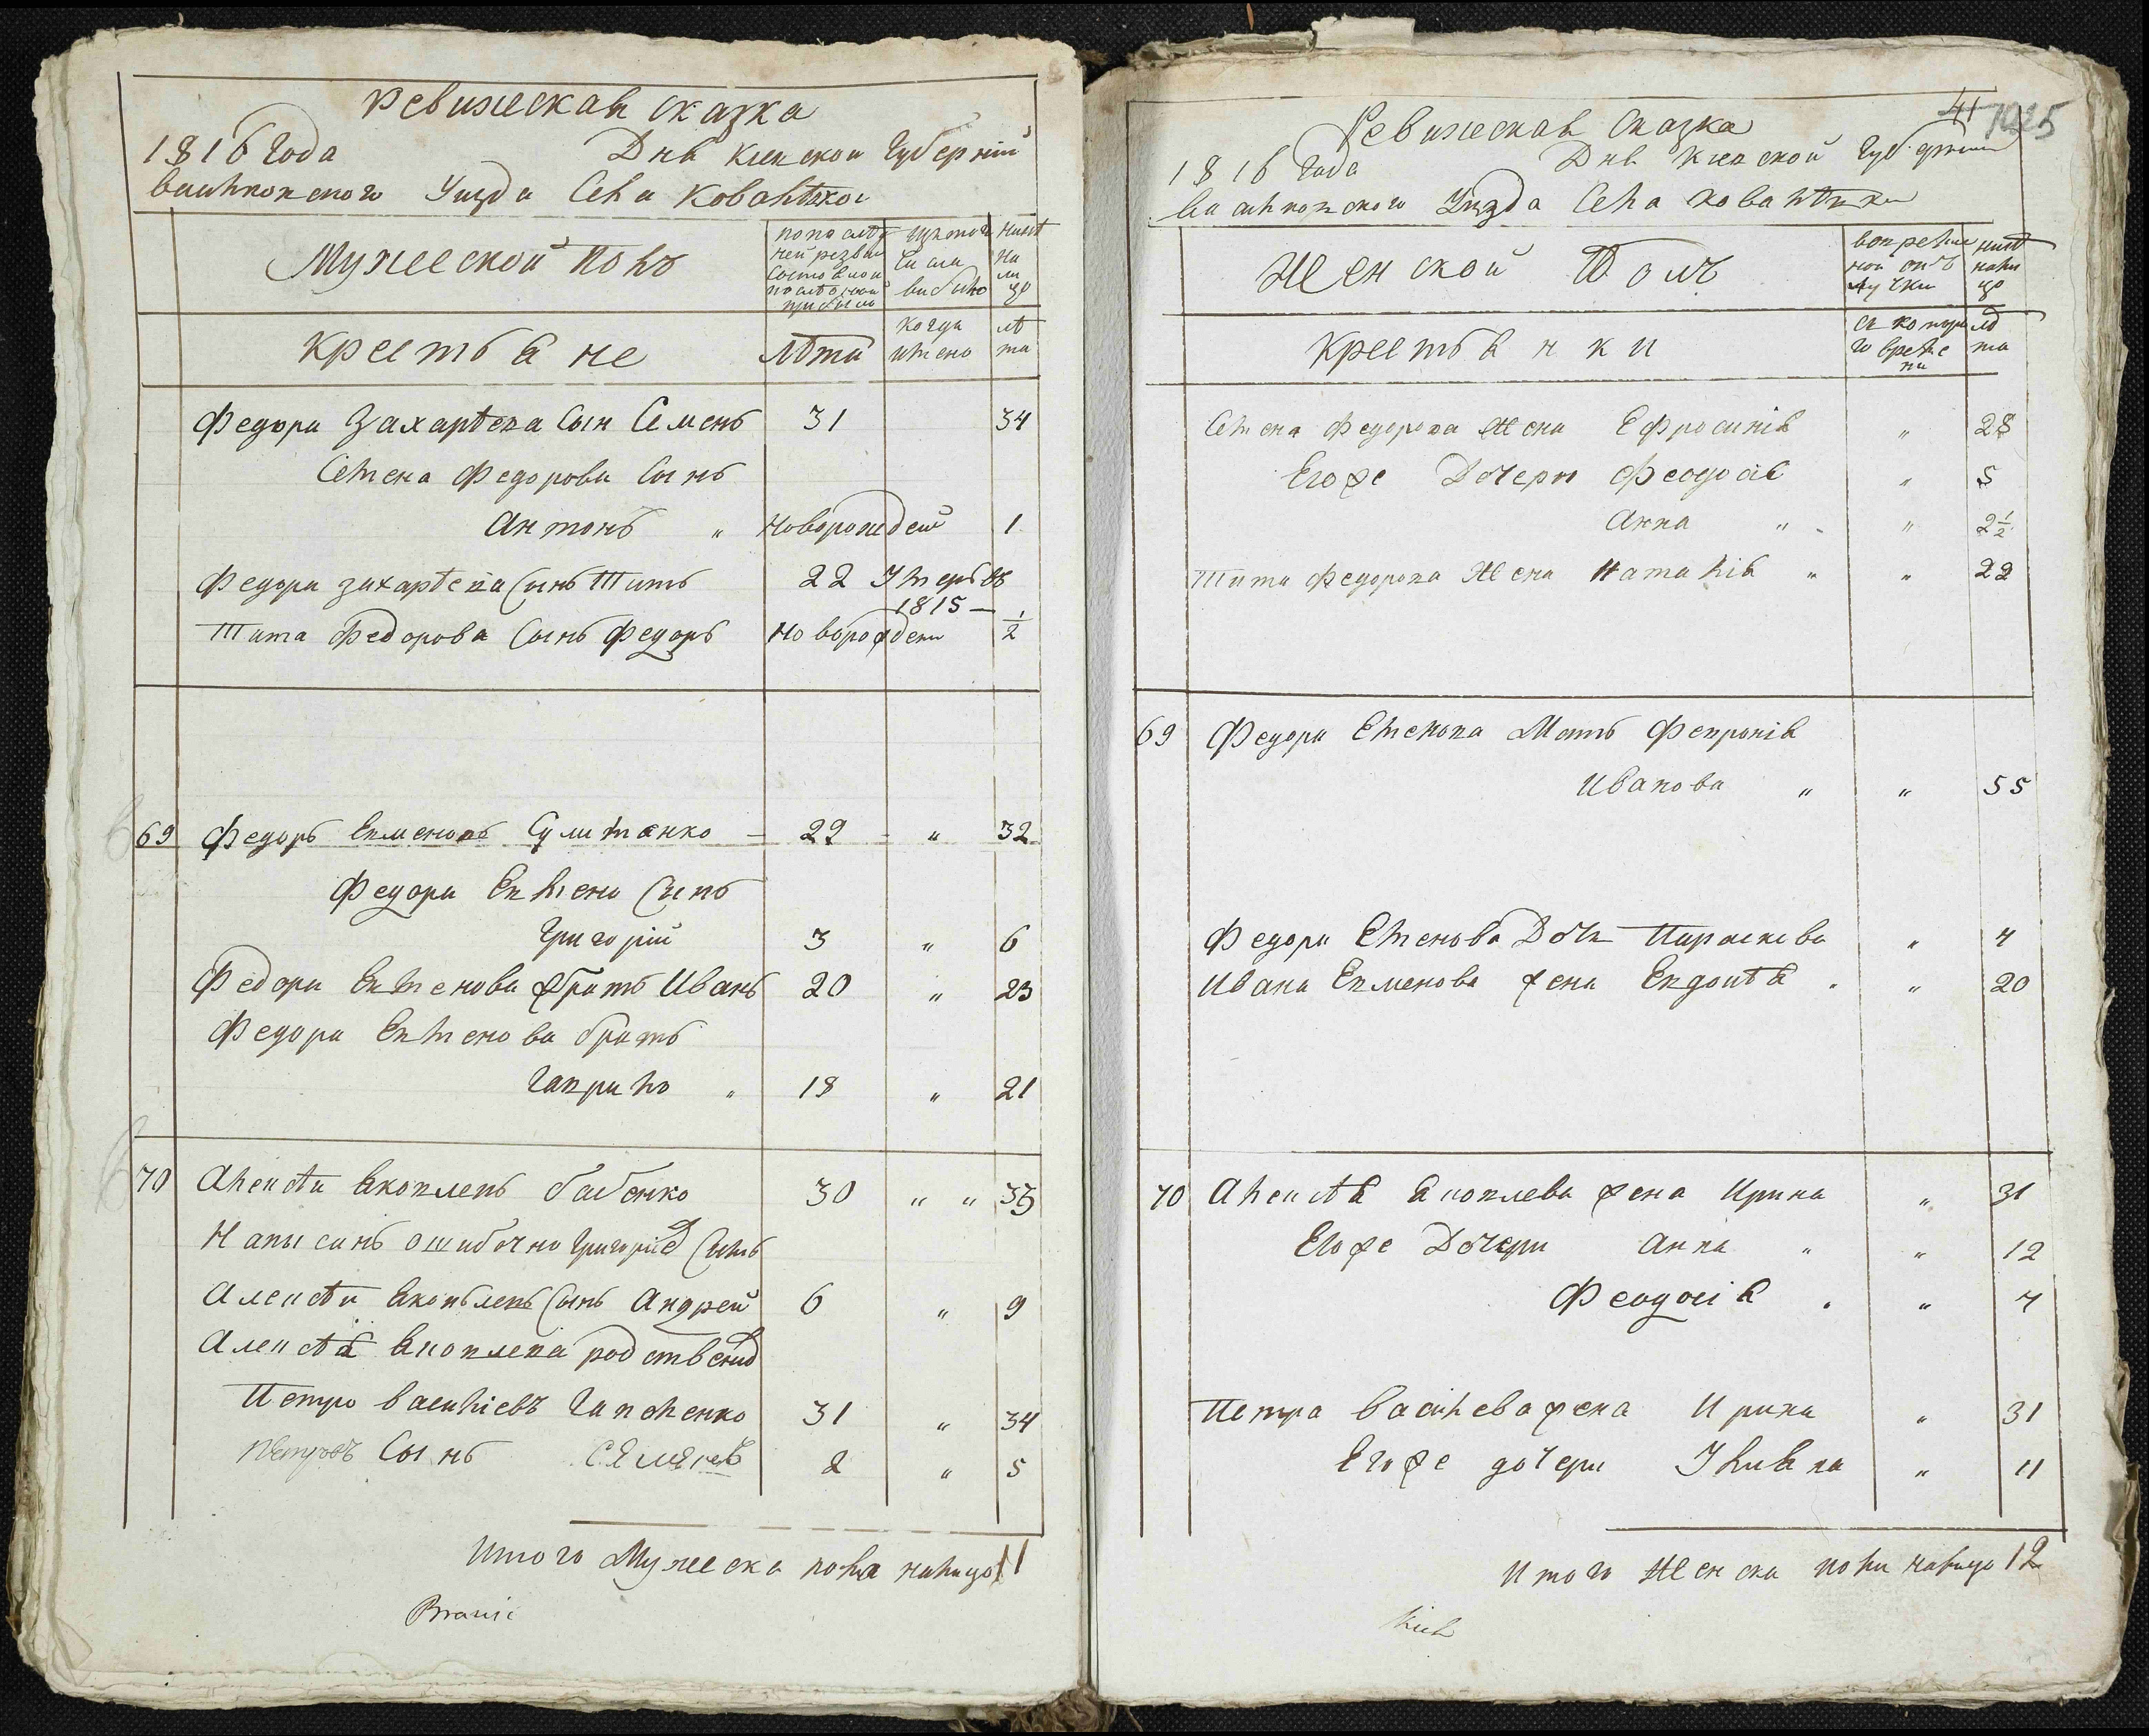 Ревижская сказка
1816 Года Дня Киевской Губерніи
васильковского Уезда Села Ковалевки
Мужеской полъ
по последней ревизіи состояло и после оной прибыло
Изъ того числа выбыло
ныне на лицо
Крестьяне
лета
когда имено
лета
Федора Захарѣева Сын Семенъ 31 34
Семена Федорова Сынъ
Антонъ " Новорожден 1
Федора захарѣева Сынъ Титъ 22 Умеръ въ
1815 —
Тита Федорова Сынъ Федоръ Новорожден 1/2
69 Федоръ Евменовъ Султанко — 29 - " 32
Федора Евмено Сынъ
Григорій 3 " 6
Федора Евменова братъ Иванъ 20 " 23
Федора Евменова братъ
Гаврило " 18 " 21
70 Алексѣй Яковлевъ бабенко 30 " " 33
Написанъ ошибочно Григорій Сынъ
Алексѣй Яковлевъ Сынъ Андрей 6 " 9
Алексѣя Яковлева родственд
Петро василіевъ Гапченко 31 " 34
Петровъ Сынъ 2 " 5
Итого Мужеска пола налицо 11
Branic
41
1025
Ревижская Сказка
1816 Года Дня Киевской Губерніи
васильковского Уезда Села Ковалевки
Женской Полъ
во временной отлучки
ныне налицо
Крестьянки
съ котораго времени
лета
Семена Федорова Жена Ефросинія " 28
Его же Дочери Феодосія " 5
Анна " " 2 1/2
Тита Федорова Жена Наталія " " 22
69 Федора Еменова Мать Февронія
Иванова " " 55
Федора Еменова Дочь Параскева " 4
Ивана Евменова жена Евдокія . " 20
70 Алексѣя Яковлева жена Ирина " 31
Его же Дочери Анна " " 12
Феодосія . " 7
Петра Васильева жена Ирина " 31
Его же дочери Ульяна " 11
Итого Женска пола налицо 12
kich